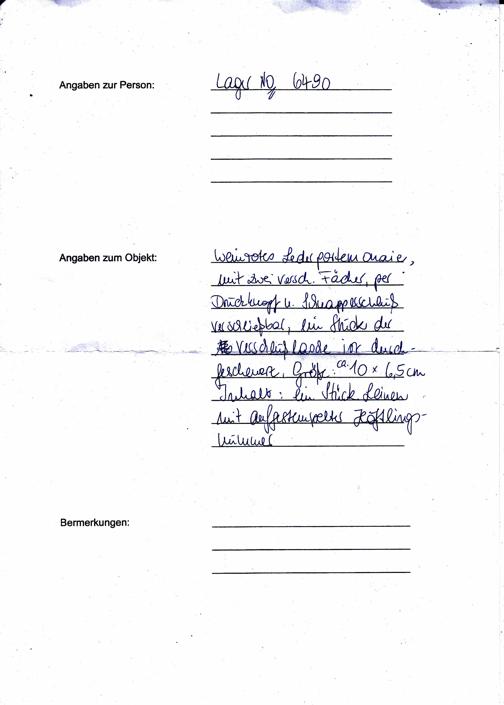 Angaben zur Person:
Lager No 6490
Angaben zum Objekt:
weinrotes Lederportemonaie,
mit zwei versch. Fächer, per
Druckknopf u. Schnappverschluß
verschließbar, ein Stück der
Verschlußlasche ist durch-
gescheuert, Größe: ca. 10 x 6,5 cm
Inhalt: ein Stück Leinen
mit aufgestempelter Häftlings-
nummer
Bermerkungen: